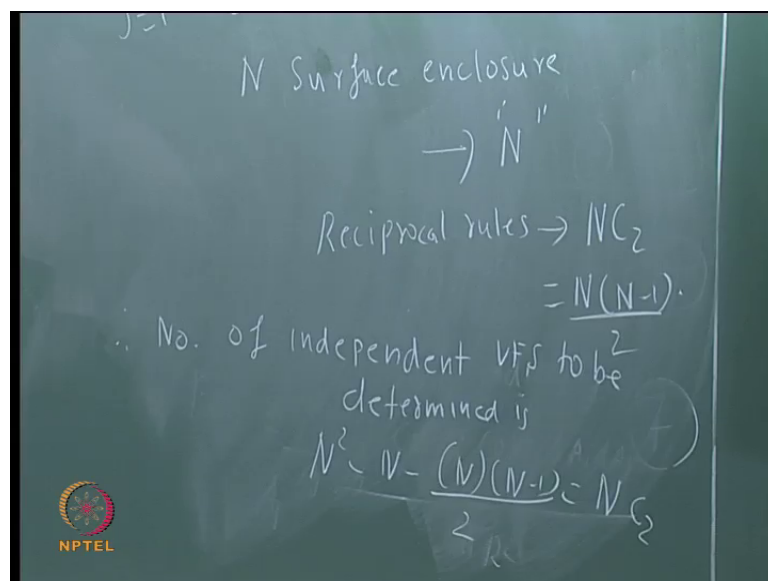 J=1
N Surface enclosure
→ "N"
Reciprocal rules → NC₂
= N(N-1).
2
∴ No. of independent VFs to be
determined is
N² - N - (N)(N-1) = NC₂
2
NPTEL